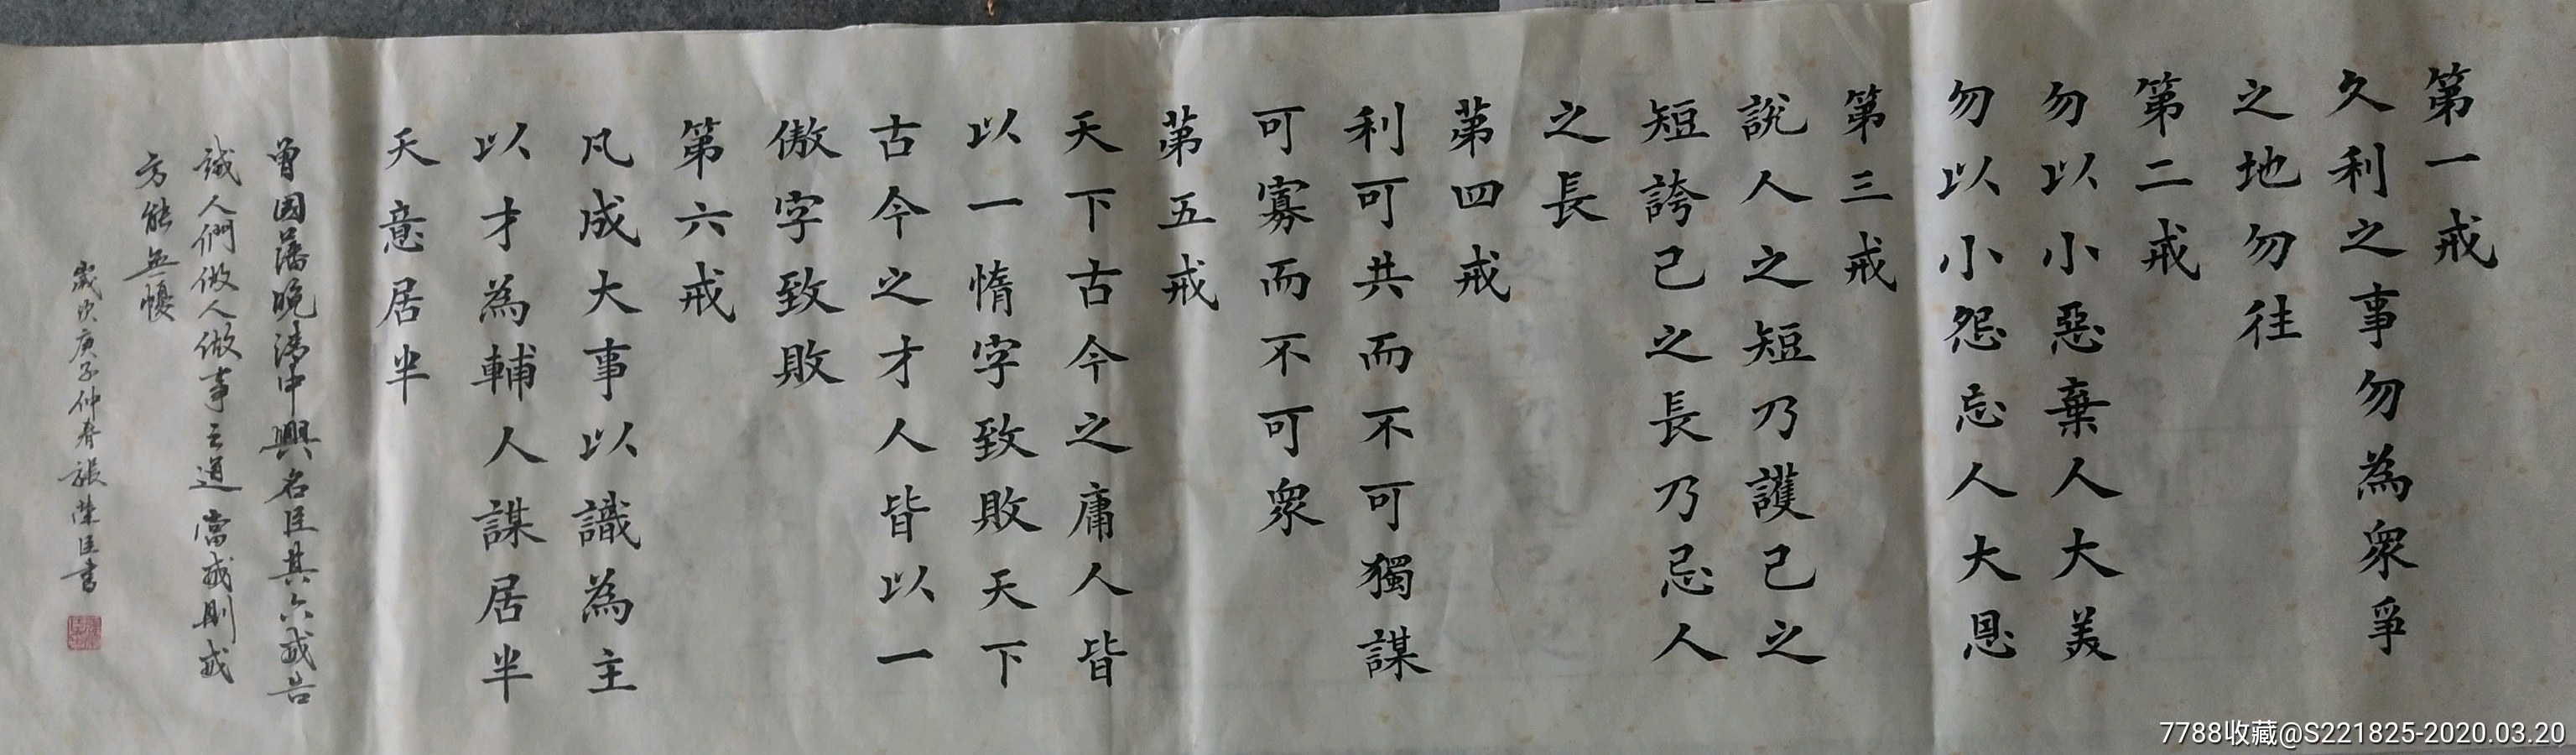 第一戒
久利之事勿為眾爭
之地勿往
第二戒
勿以小惡棄人大美
勿以小怨忘人大恩
第三戒
說人之短乃護己之
短誇己之長乃忌人
之長
第四戒
利可共而不可獨謀
可寡而不可眾
第五戒
天下古今之庸人皆
以一惰字致敗天下
古今之才人皆以一
傲字致敗
第六戒
凡成大事以識為主
以才為輔人謀居半
天意居半
曾國藩晚清中興名臣其六戒告
誡人們做人做事之道當戒則戒
方能無憂
歲次庚子仲春張榮臣書
7788收藏@S221825-2020.03.20